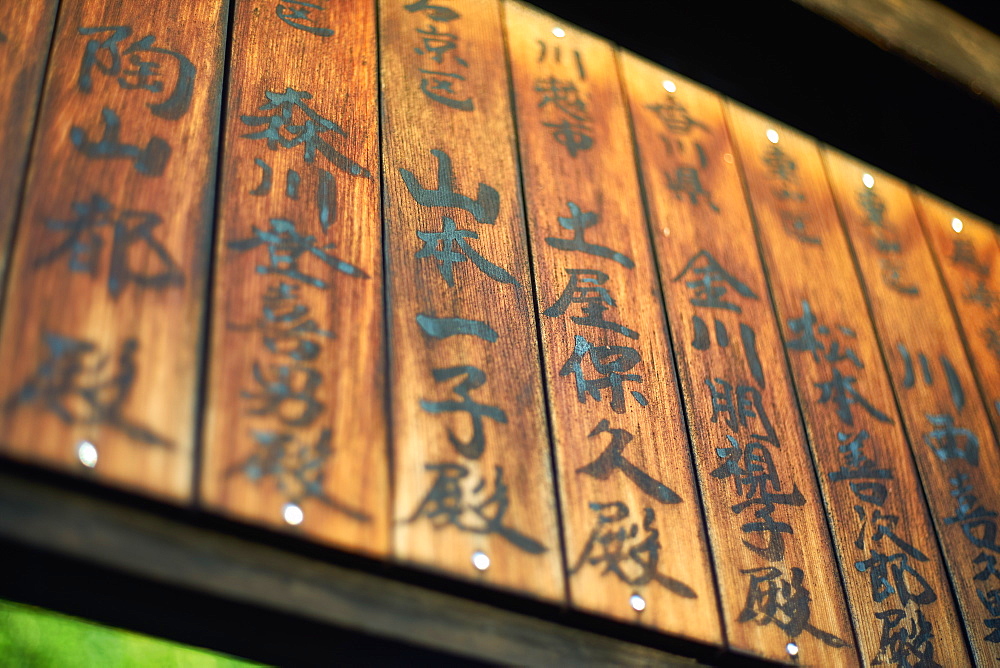 川西
松本善次郎殿
香川県 金川朋視子殿
川越市 土屋保久殿
右京区 山本一子殿
区 森川登喜男殿
陶山都殿